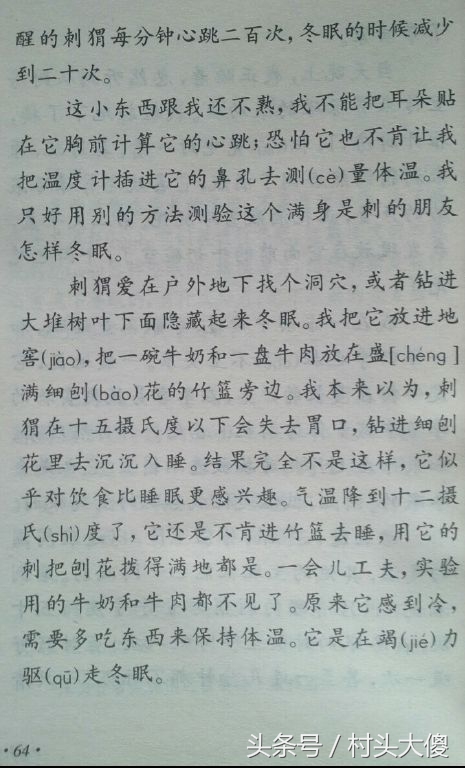 醒的刺猬每分钟心跳二百次，冬眠的时候减少
到二十次。
这小东西跟我还不熟，我不能把耳朵贴
在它胸前计算它的心跳；恐怕它也不肯让我
把温度计插进它的鼻孔去测(cè)量体温。我
只好用别的方法测验这个满身是刺的朋友
怎样冬眠。
刺猬爱在户外地下找个洞穴，或者钻进
大堆树叶下面隐藏起来冬眠。我把它放进地
窖(jiào)，把一碗牛奶和一盘牛肉放在盛[chéng]
满细刨(bào)花的竹篮旁边。我本来以为，刺
猬在十五摄氏度以下会失去胃口，钻进细刨
花里去沉沉入睡。结果完全不是这样，它似
乎对饮食比睡眠更感兴趣。气温降到十二摄
氏(shì)度了，它还是不肯进竹篮去睡，用它的
刺把刨花拨得满地都是。一会儿工夫，实验
用的牛奶和牛肉都不见了。原来它感到冷，
需要多吃东西来保持体温。它是在竭(jié)力
驱(qū)走冬眠。
·64·
头条号／村头大傻